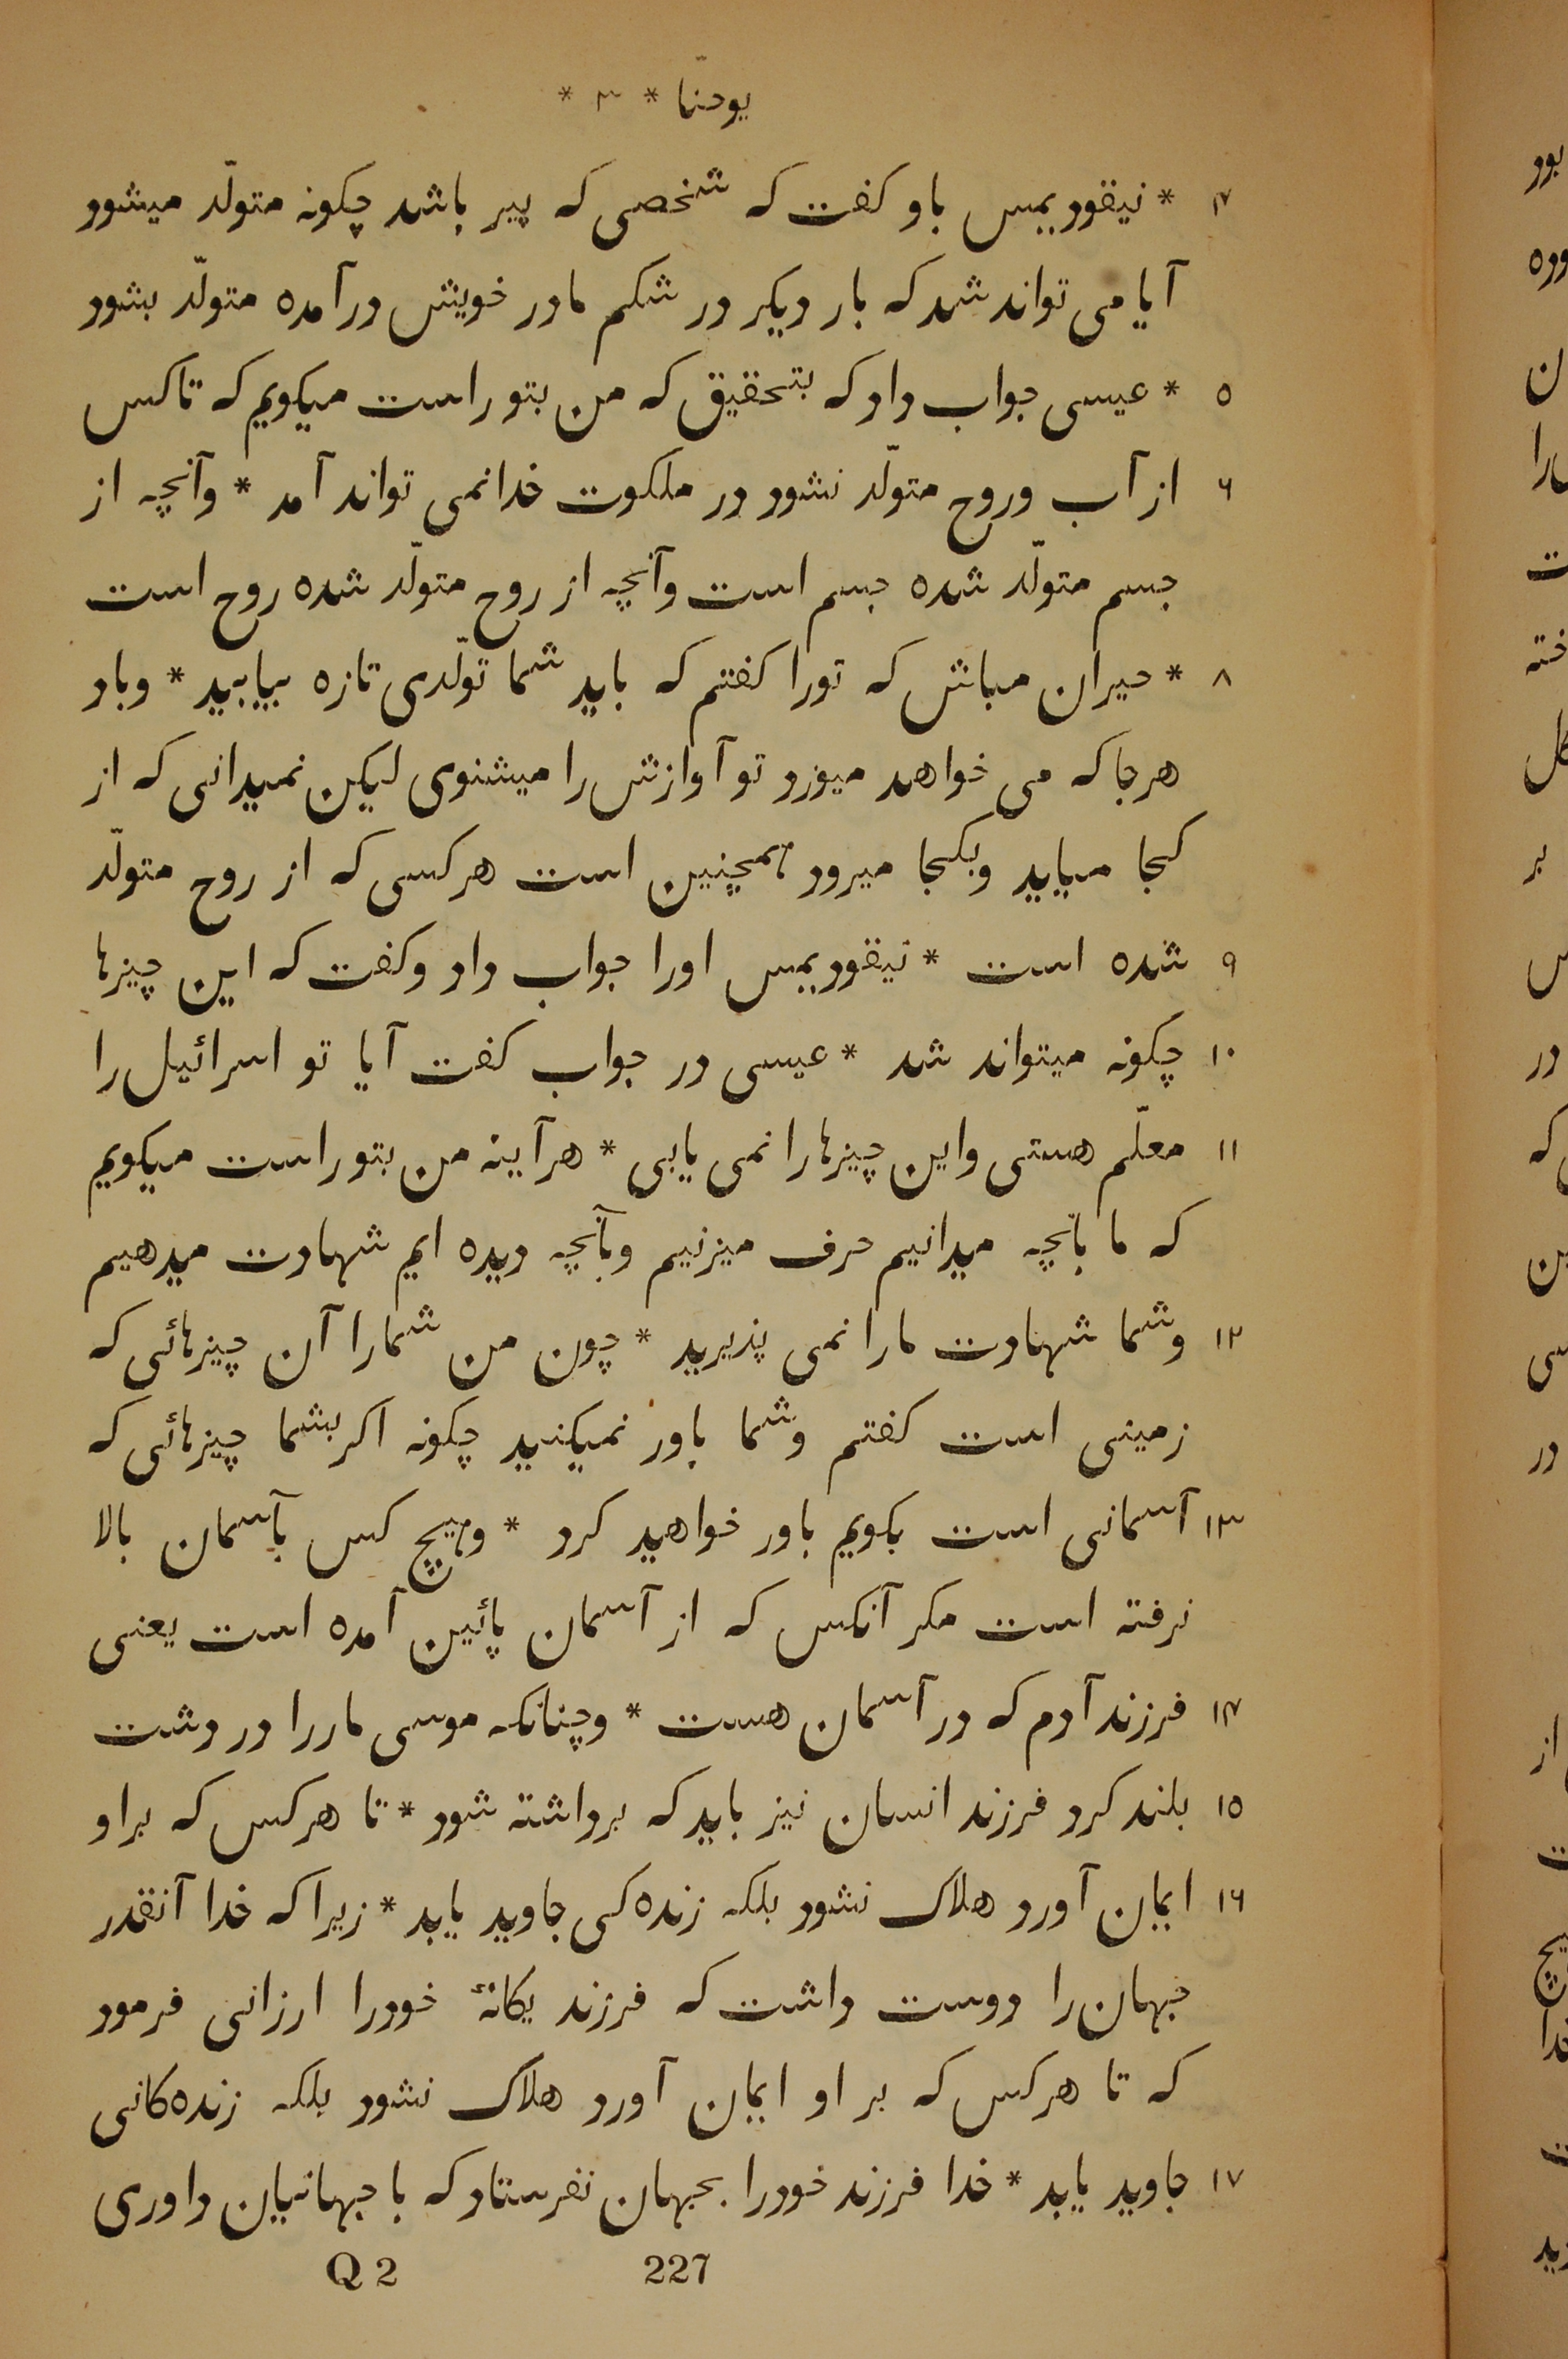 یوحنّا * ۳ *
۴ * نیقودیمس باو کفت که شخصی که پیر باشد چکونه متولّد میشود
آیا می تواند شد که بار دیکر در شکم مادر خویش درآمده متولّد بشود
۵ * عیسی جواب داد که بتحقیق که من بتو راست میکویم که تا کس
۶ از آب وروح متولّد نشود در ملکوت خدا نمی تواند آمد * وآنچه از
جسم متولّد شده جسم است وآنچه از روح متولّد شده روح است
۸ * حیران مباش که تورا کفتم که باید شما تولّدی تازه بیابید * وباد
هرجا که می خواهد میوزد تو آوازش را میشنوی لیکن نمیدانی که از
کجا میاید وبکجا میرود همچنین است هرکسی که از روح متولّد
۹ شده است * نیقودیمس اورا جواب داد وکفت که این چیزها
۱۰ چکونه میتواند شد * عیسی در جواب کفت آیا تو اسرائیل را
۱۱ معلّم هستی واین چیزها را نمی یابی * هرآینه من بتو راست میکویم
که ما بآنچه میدانیم حرف میزنیم وبآنچه دیده ایم شهادت میدهیم
۱۲ وشما شهادت مارا نمی پذیرید * چون من شمارا آن چیزهائی که
زمینی است کفتم وشما باور نمیکنید چکونه اکر بشما چیزهائی که
۱۳ آسمانی است بکویم باور خواهید کرد * وهیچ کس بآسمان بالا
نرفته است مکر آنکس که از آسمان پائین آمده است یعنی
۱۴ فرزند آدم که در آسمان هست * وچنانکه موسی مار را در دشت
۱۵ بلند کرد فرزند انسان نیز باید که برداشته شود * تا هرکس که براو
۱۶ ایمان آورد هلاک نشود بلکه زنده کی جاوید یابد * زیرا که خدا آنقدر
جهان را دوست داشت که فرزند یکانهٔ خودرا ارزانی فرمود
که تا هرکس که بر او ایمان آورد هلاک نشود بلکه زنده کانی
۱۷ جاوید یابد * خدا فرزند خودرا بجهان نفرستاد که با جهانیان داوری
227 Q 2